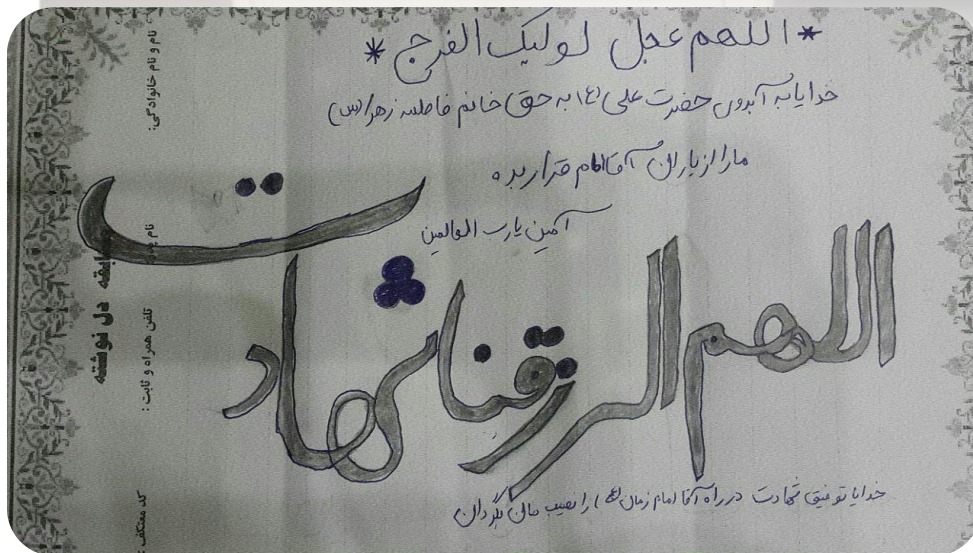 * اللهم عجل لولیک الفرج *
خدایا به آبروی حضرت علی (ع) به حق خانم فاطمه زهرا (س)
ما را از یاران آقا امام قرار بده
آمین یا رب العالمین
اللهم الرزقنا شهادت
خدایا توفیق شهادت در راه آقا امام زمان را نصیب مان بگردان
نام و نام خانوادگی:
نام
تلفن همراه و ثابت :
کد معتکف :
دل نوشته